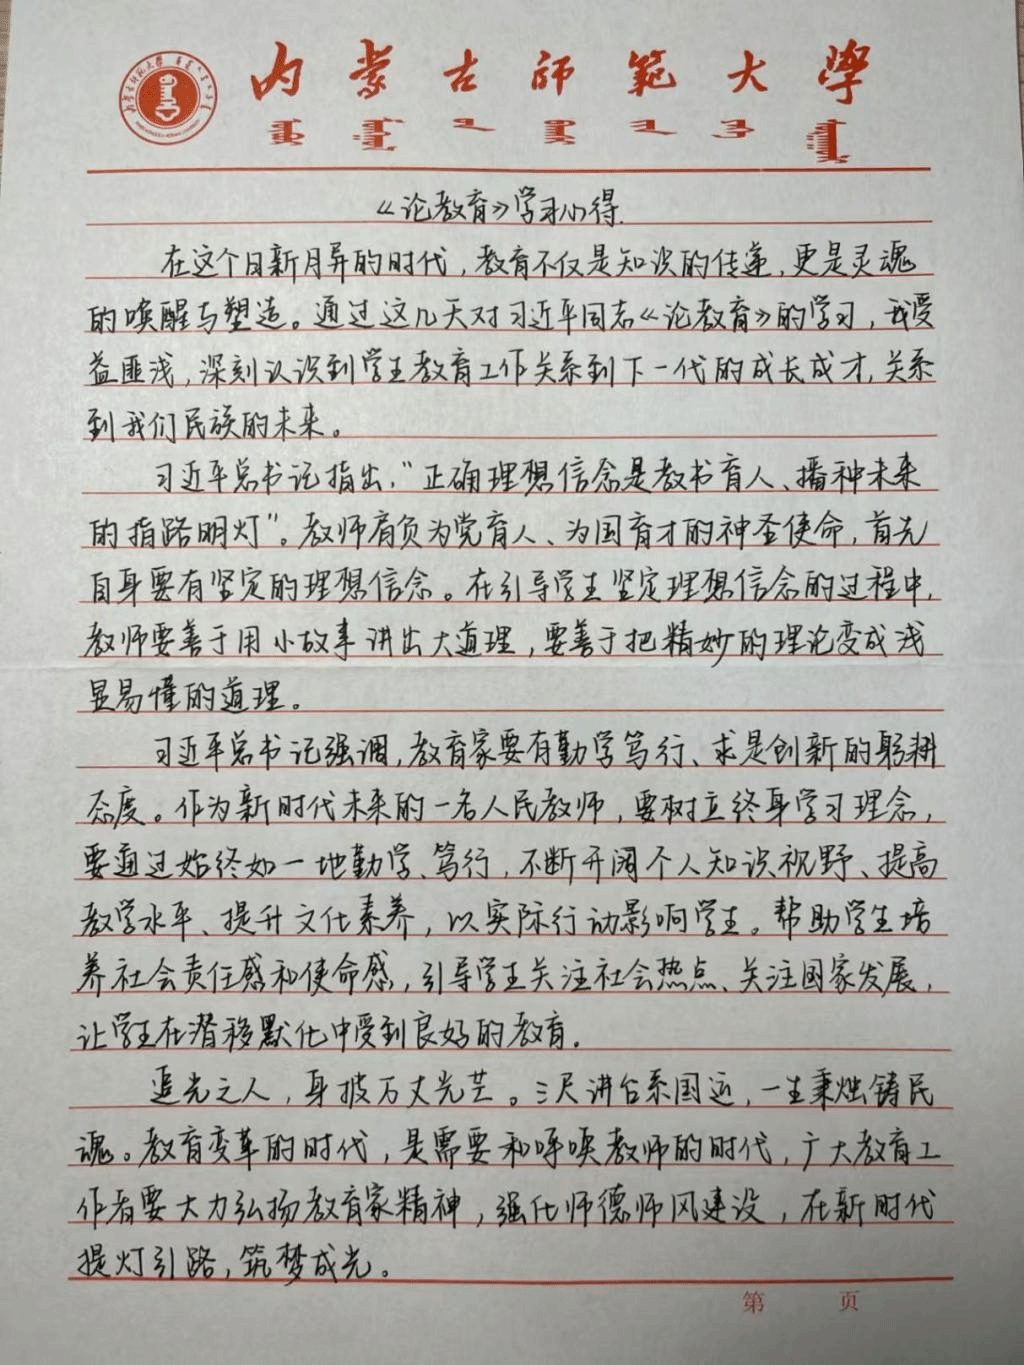 内蒙古师范大学
《论教育》学习心得.
在这个日新月异的时代,教育不仅是知识的传递,更是灵魂
的唤醒与塑造。通过这几天对习近平同志《论教育》的学习,我受
益匪浅,深刻认识到学生教育工作关系到下一代的成长成才,关系
到我们民族的未来。
习近平总书记指出,“正确理想信念是教书育人、播种未来
的指路明灯”。教师肩负为党育人、为国育才的神圣使命,首先
自身要有坚定的理想信念。在引导学生坚定理想信念的过程中,
教师要善于用小故事讲出大道理,要善于把精妙的理论变成浅
显易懂的道理。
习近平总书记强调,教育家要有勤学笃行、求是创新的躬耕
态度。作为新时代未来的一名人民教师,要树立终身学习理念,
要通过始终如一地勤学、笃行,不断开阔个人知识视野、提高
教学水平、提升文化素养,以实际行动影响学生。帮助学生培
养社会责任感和使命感,引导学生关注社会热点、关注国家发展,
让学生在潜移默化中受到良好的教育.
追光之人,身披万丈光芒。三尺讲台系国运,一生秉烛铸民
魂。教育变革的时代,是需要和呼唤教师的时代,广大教育工
作者要大力弘扬教育家精神,强化师德师风建设,在新时代
提灯引路,筑梦成光。
第 页